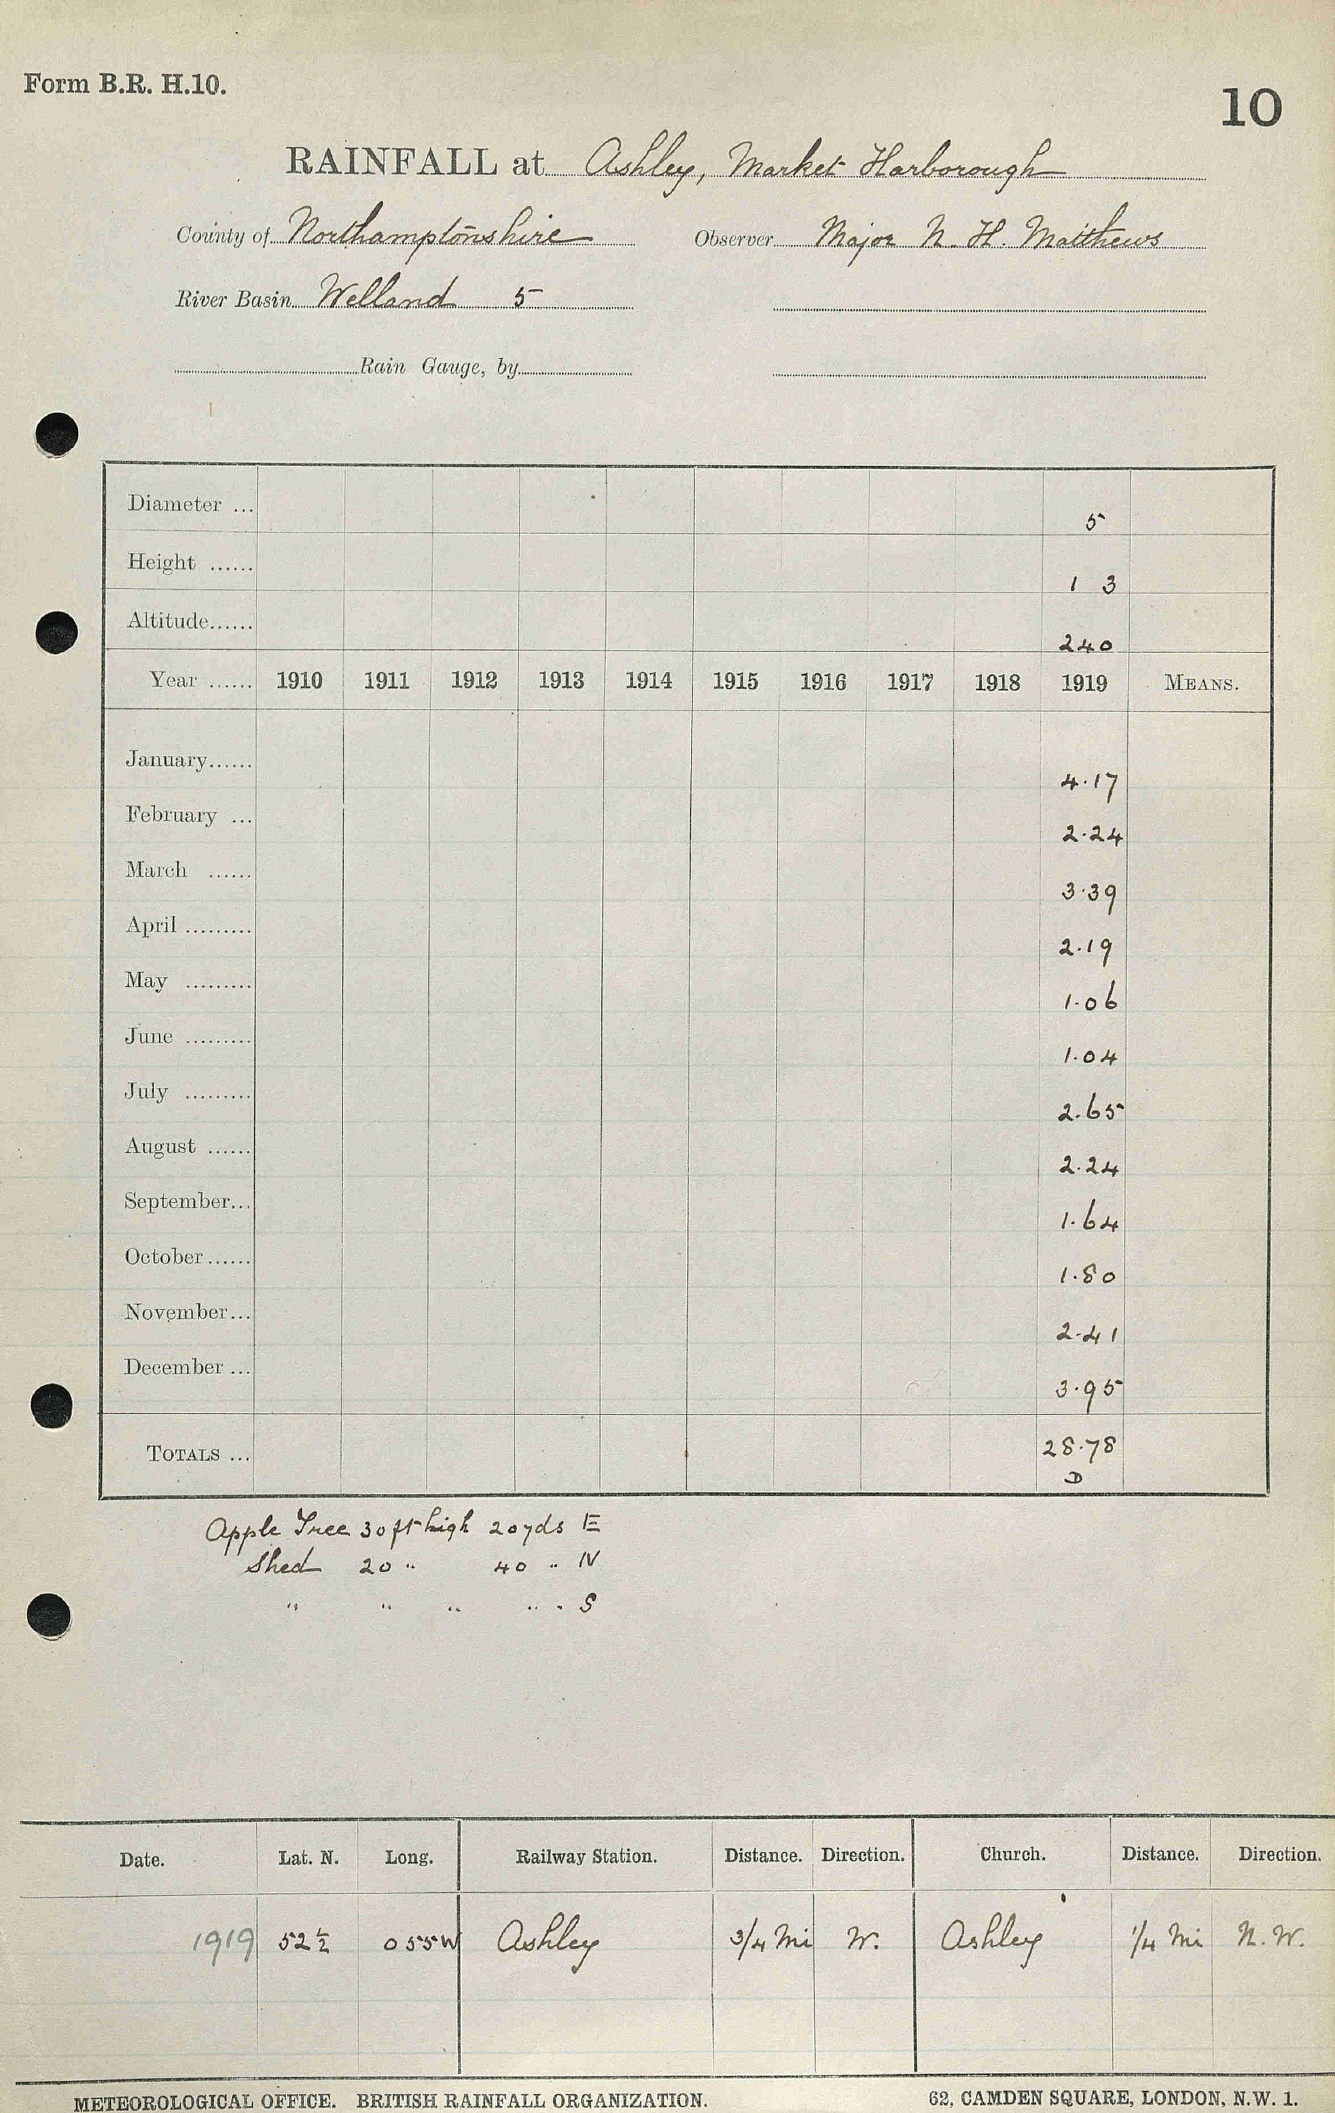 Form B.R. H.10.
10
RAINFALL at Ashley, Market Harborough
County of Northamptonshire Observer Major N. H. Matthews
River Basin Welland 5
Rain Gauge, by
Diameter ... 5
Height ...... 1 3
Altitude...... 240
Year ...... 1910 1911 1912 1913 1914 1915 1916 1917 1918 1919 MEANS.
January...... 4.17
February ... 2.24
March ...... 3.39
April ......... 2.19
May ......... 1.06
June ......... 1.04
July ......... 2.65
August ...... 2.24
September... 1.64
October ...... 1.80
November... 2.41
December ... 3.95
TOTALS ... 28.78
D
Apple Tree 30 ft high 20 yds E
Shed 20 " 40 " N
" " " " " S
Date. Lat. N. Long. Railway Station. Distance. Direction. Church. Distance. Direction.
1919 52 ½ 0 55 W Ashley 3/4 Mi W. Ashley 1/4 Mi N.W.
METEOROLOGICAL OFFICE. BRITISH RAINFALL ORGANIZATION. 62, CAMDEN SQUARE, LONDON, N.W. 1.